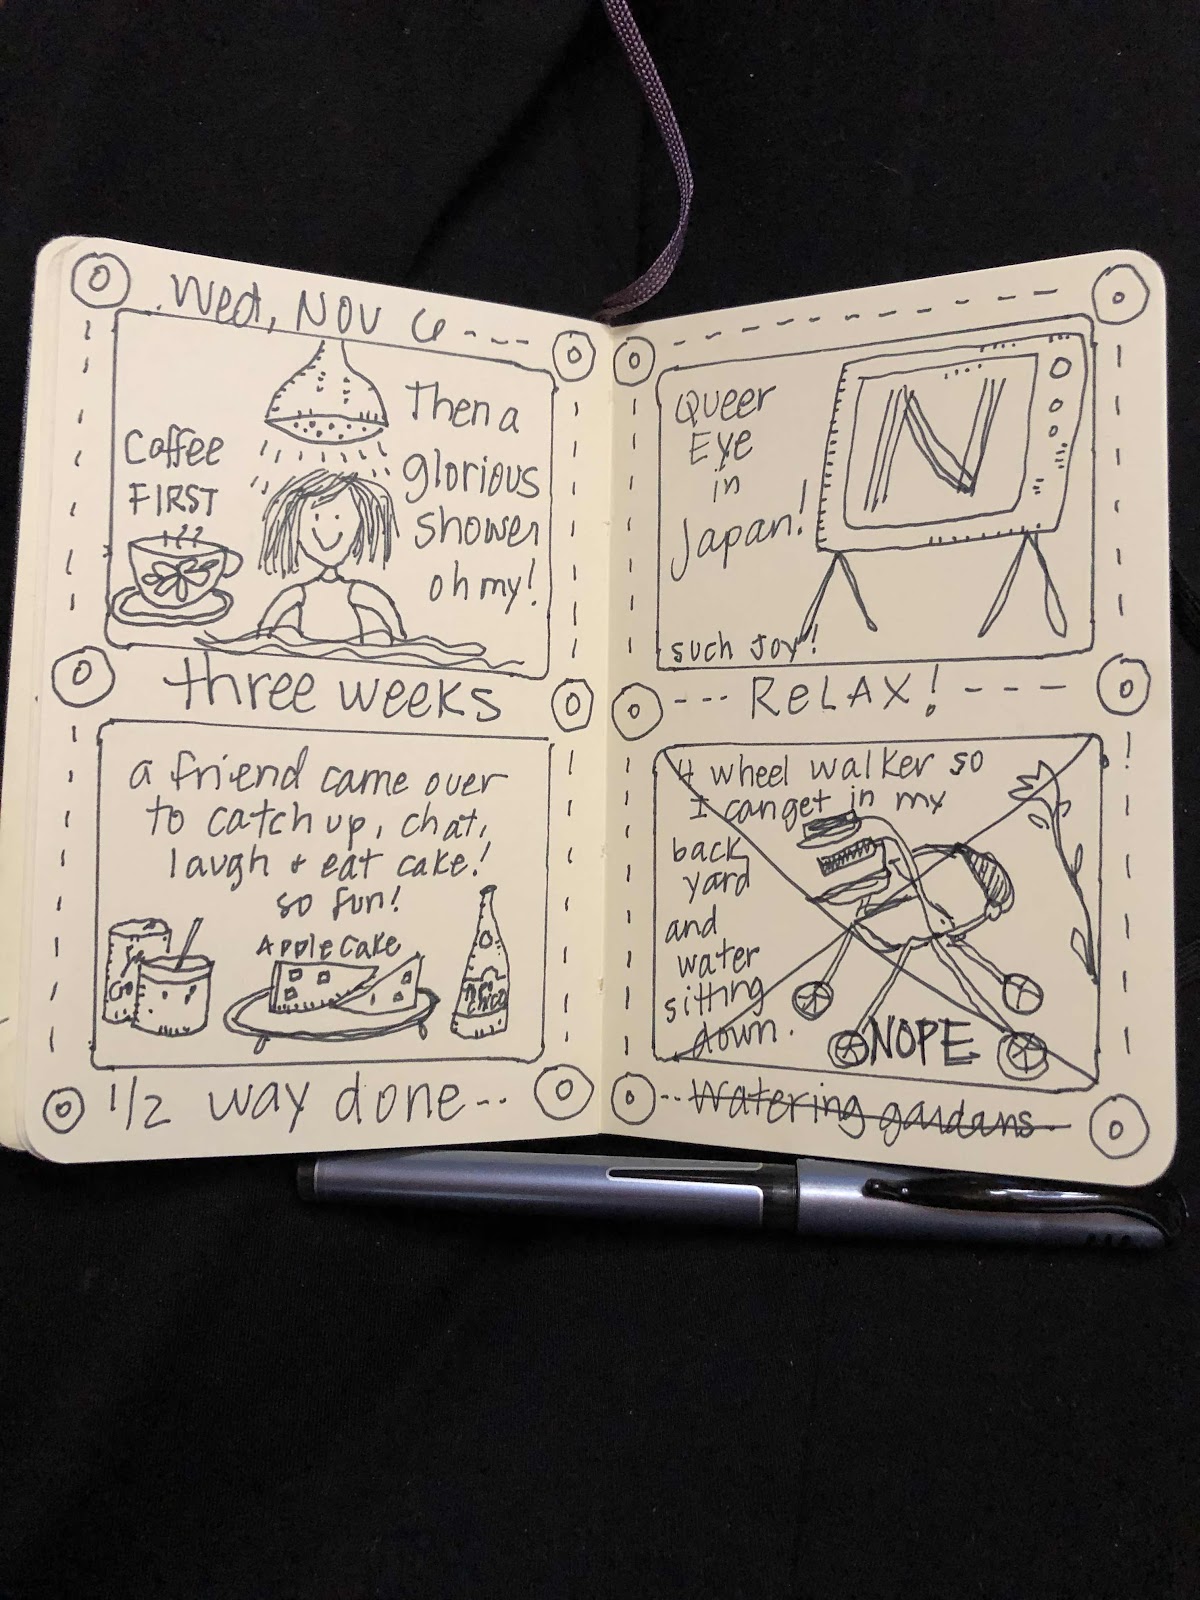 Wed, Nov 6
Coffee
FIRST
Then a
glorious
shower
oh my!
three weeks
a friend came over
to catch up, chat,
laugh + eat cake!
so fun!
Apple Cake
1/2 way done
Queer
Eye
in
Japan!
N
such joy!
RELAX!
4 wheel walker so
I can get in my
back
yard
and
water
sitting
down.
NOPE
Watering gardans